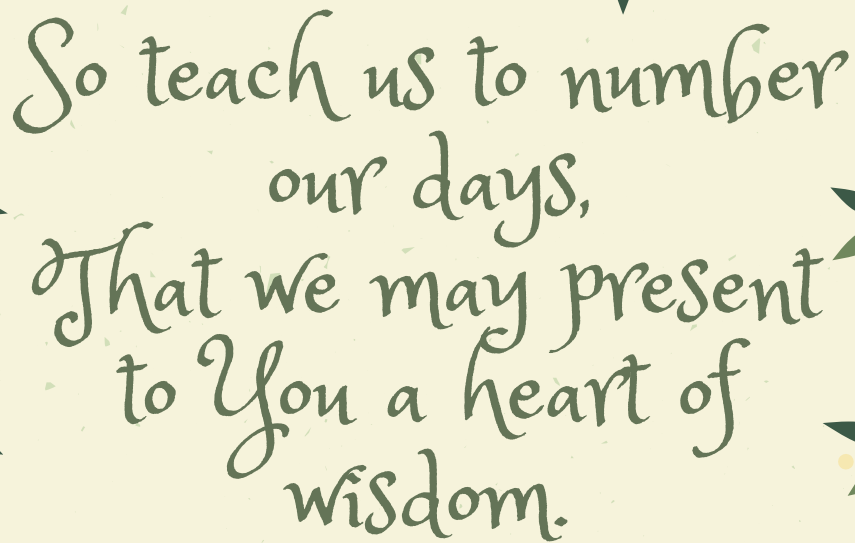 So teach us to number
our days,
That we may present
to You a heart of
wisdom.